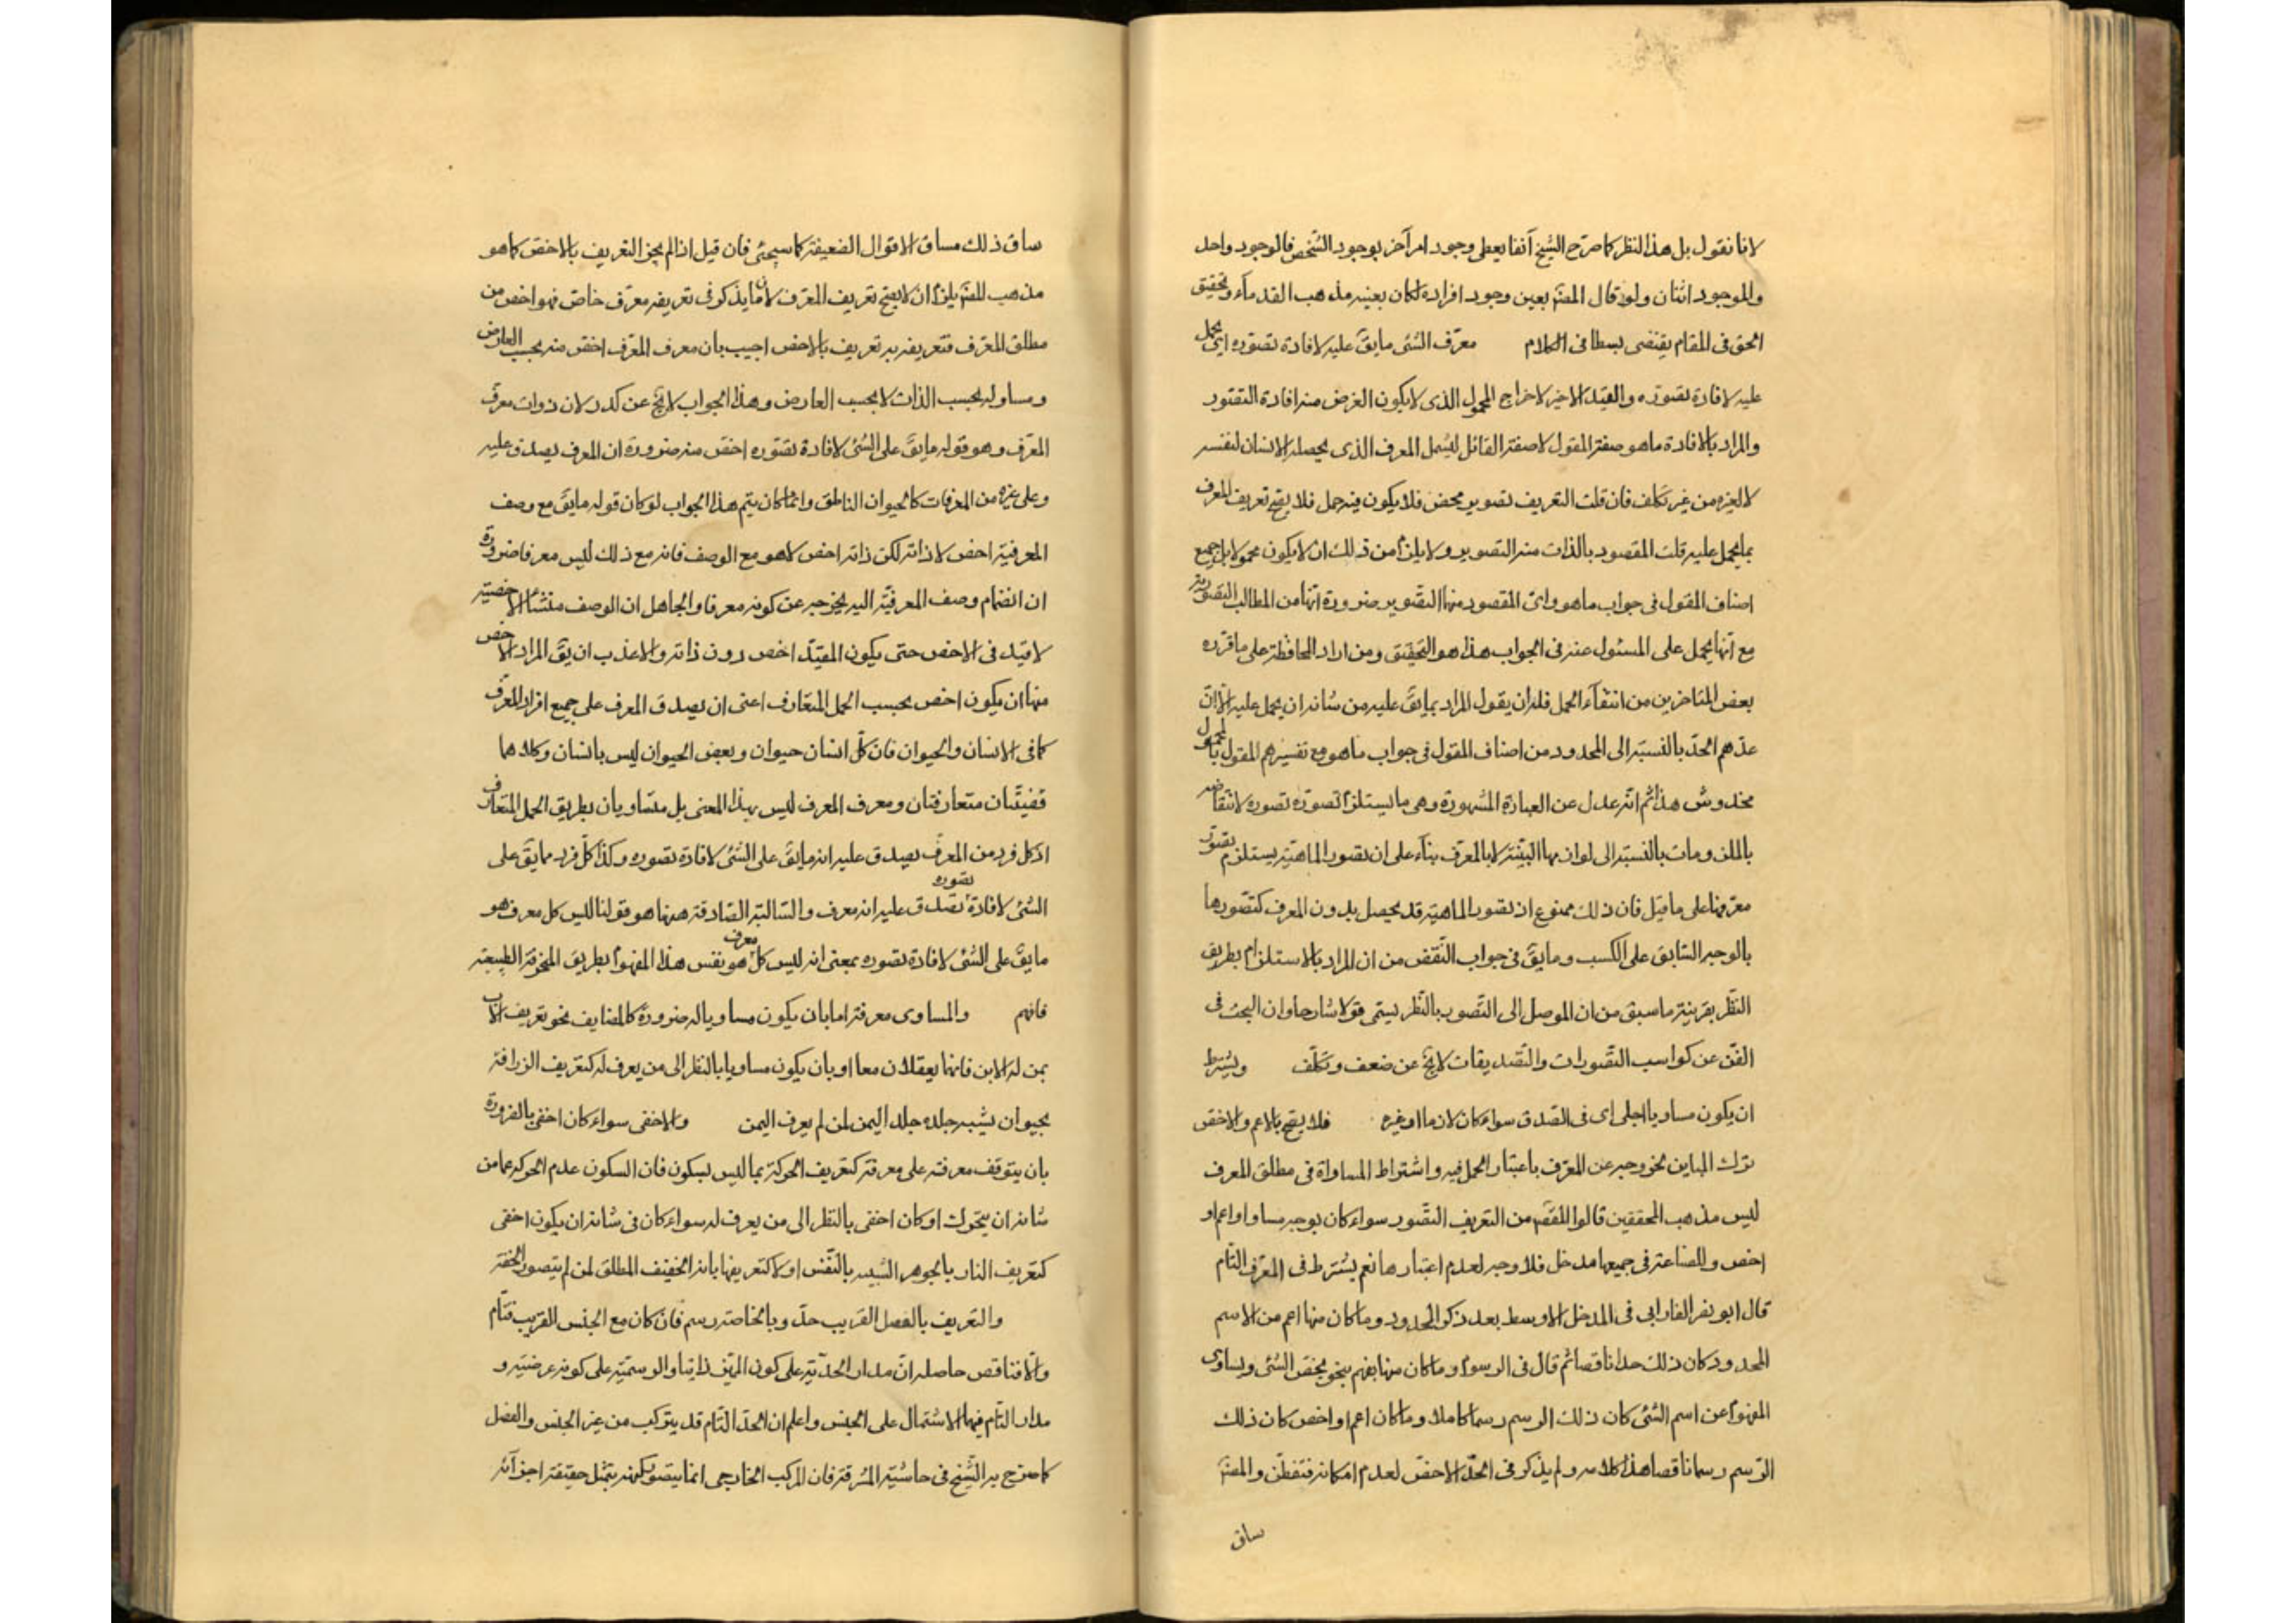 لانا نقول بل هذا النظر كما صرّح الشيخ آنفا يعطى وجود امر آخر بوجود الشخص فالوجود واحد
والموجود اثنان ولو قال المصّ بعين وجود افراده لكان بعينه مذهب القدماء وتحقيق
الحق فى المقام يقتضى بسطا فى الكلام معرّف الشئ ما يقَ عليه لافادة تصوّره اى يحمل
عليه لافادة تصوّره والقيد الاخير لاخراج المحمول الذى لا يكون الغرض منه افادة التصوّر
والمراد بالافادة ما هو صفة المقول لا صفة القائل ليشمل المعرف الذى يحصله الانسان لنفسه
لا لغيره من غير تكلف فان قلت التعريف تصوير محض فلا يكون فيه حمل فلا يصح تعريف المعرف
بما يحمل عليه قلت المقصود بالذات منه التصوير ولا يلزم من ذلك ان لا يكون محمولا بل جميع
اصناف المقول فى جواب ما هو واىّ المقصود منها التصوير ضرورة انها من المطالب التصوّرية
مع انها يحمل على المسئول عنه فى الجواب هذا هو التحقيق ومن اراد المحافظة على ما قرّره
بعض المتاخرين من انتفآء الحمل فله ان يقول المراد بما يقَ عليه من شانه ان يحمل عليه الا انّ
عدّهم الحدّ بالنسبة الى المحدود من اصناف المقول فى جواب ما هو مع تفسيرهم المقول بالمحمول
مخدوش هذا ثم انّه عدل عن العبارة المشهورة وهى ما يستلزم تصوّره تصوره لانتقاضه
بالملزومات بالنسبة الى لوازمها البيّنة لا بالمعرّف بناء على ان تصور الماهيّة يستلزم تصوّر
معرّفها على ما قيل فان ذلك ممنوع اذ تصور الماهيّة قد يحصل بدون المعرف كتصوّرها
بالوجه السّابق على الكسب وما يقَ فى جواب النّقض من ان المراد بالاستلزام بطريق
النّظر بقرينة ما سبق من ان الموصل الى التّصور بالنّظر يسمى قولا شارحا وان البحث فى
الفنّ عن كواسب التّصورات والتّصديقات لا يخ عن ضعف وتكلّف ويشترط
ان يكون مساويا اجلى اى فى الصّدق سواء كان لازما او غيره فلا يصح بالاعم والاخصّ
ترك المباين لخروجه عن المعرّف باعتبار الحمل فيه واشتراط المساواة فى مطلق المعرف
ليس مذهب المحققين قالوا المقصّ من التعريف التّصور سواء كان بوجه مساو او اعم او
اخص وللصناعة فى جميعها مدخل فلا وجه لعدم اعتبارها نعم يشترط فى المعرّف التّام
قال ابو نصر الفارابى فى المدخل الاوسط بعد ذكر الحدود وما كان منها اعم من الاسم
المحدود كان ذلك حدا ناقصا ثم قال فى الرسوم وما كان منها يفهم بنحو يخصّ الشئ ويساوى
المفهوم عن اسم الشئ كان ذلك الرسم رسما كاملا وما كان اعم او اخص كان ذلك
الرّسم رسما ناقصا هذا كلامه ولم يذكر فى الحدّ الاخصّ لعدم امكانه فتفطّن والمصّ
ساق
ساق ذلك مساق الاقوال الضعيفة كما سيجئ فان قيل اذا لم يجز التعريف بالاخصّ كما هو
مذهب المصّ يلزم ان لا يصح تعريف المعرّف لان ما يذكر فى تعريفه معرّف خاصّ فهو اخص من
مطلق المعرّف فتعريفه به تعريف بالاخص اجيب بان معرف المعرّف اخصّ منه بحسب العارض
ومساو له بحسب الذات لا بحسب العارض وهذا الجواب لا يخ عن كدر لان ذوات معرف
المعرّف وهو قوله ما يقَ على الشئ لافادة تصوّره اخصّ منه ضرورة ان المعرف يصدق عليه
وعلى غيره من المعرفات كالحيوان الناطق وانما كان يتم هذا الجواب لو كان قوله ما يقَ مع وصف
المعرفية اخص لا ذاته لكن ذاته اخص لا هو مع الوصف فانه مع ذلك ليس معرفا ضرورة
ان انضمام وصف المعرفيّة اليه يخرجه عن كونه معرفا والجاهل ان الوصف منشأ الاخصيّة
لا قيد فى الاخص حتى يكون المقيّد اخص دون ذاته والاعذب ان يقَ المراد الاخص
منها ان يكون اخص بحسب الحمل المتعارف اعنى ان يصدق المعرف على جميع افراد المعرّف
كما فى الانسان والحيوان فان كلّ انسان حيوان وبعض الحيوان ليس بانسان وكلاهما
قضيتان متعارفتان ومعرف المعرف ليس بهذا المعنى بل متساويان بطريق الحمل المتعارف
اذ كل فرد من المعرف يصدق عليه انه ما يقَ على الشّئ لافادة تصوره وكذا كلّ فرد مما يقَ على
الشئ لافادة تصوره يصدق عليه انه معرف والسّالبة الصّادقة ههنا هو قولنا ليس كل معرف هو
ما يقَ على الشئ لافادة تصوره بمعنى انه ليس كل معرف هو نفس هذا المفهوم بطريق المنحرفة الطبيعية
فافهم والمساوى معرفة اما بان يكون مساويا له ضرورة كالمضايف نحو تعريف الاب
بمن له الابن فانهما يعقلان معا او بان يكون مساويا بالنظر الى من يعرف له كتعريف الزرافة
بحيوان يشبه جلده جلد اليمن لمن لم يعرف اليمن والاخفى سواء كان اخفى بالضرورة
بان يتوقف معرفته على معرفته كتعريف الحركة بما ليس بسكون فان السكون عدم الحركة عما من
شانه ان يتحرك او كان اخفى بالنظر الى من يعرف له سواء كان فى شانه ان يكون اخفى
كتعريف النار بالجوهر الشبيه بالنّفس او لا كتعريفها بانه الخفيف المطلق لمن لم يتصور الخفة
والتعريف بالفصل القريب حدّ وبالخاصة رسم فان كان مع الجنس القريب فتامّ
والّا فناقص حاصله انّ مدار الحدّية على كون المميّز ذاتيا والرسميّة على كونه عرضيّه و
مدار التام فيهما الاشتمال على الجنس واعلم ان الحدّ التام قد يتركب من غير الجنس والفصل
كما صرح به الشّيخ فى حاشيته فان المركب الخارجى انما يتصور بكنهه بتمثل حقيقة اجزآئه